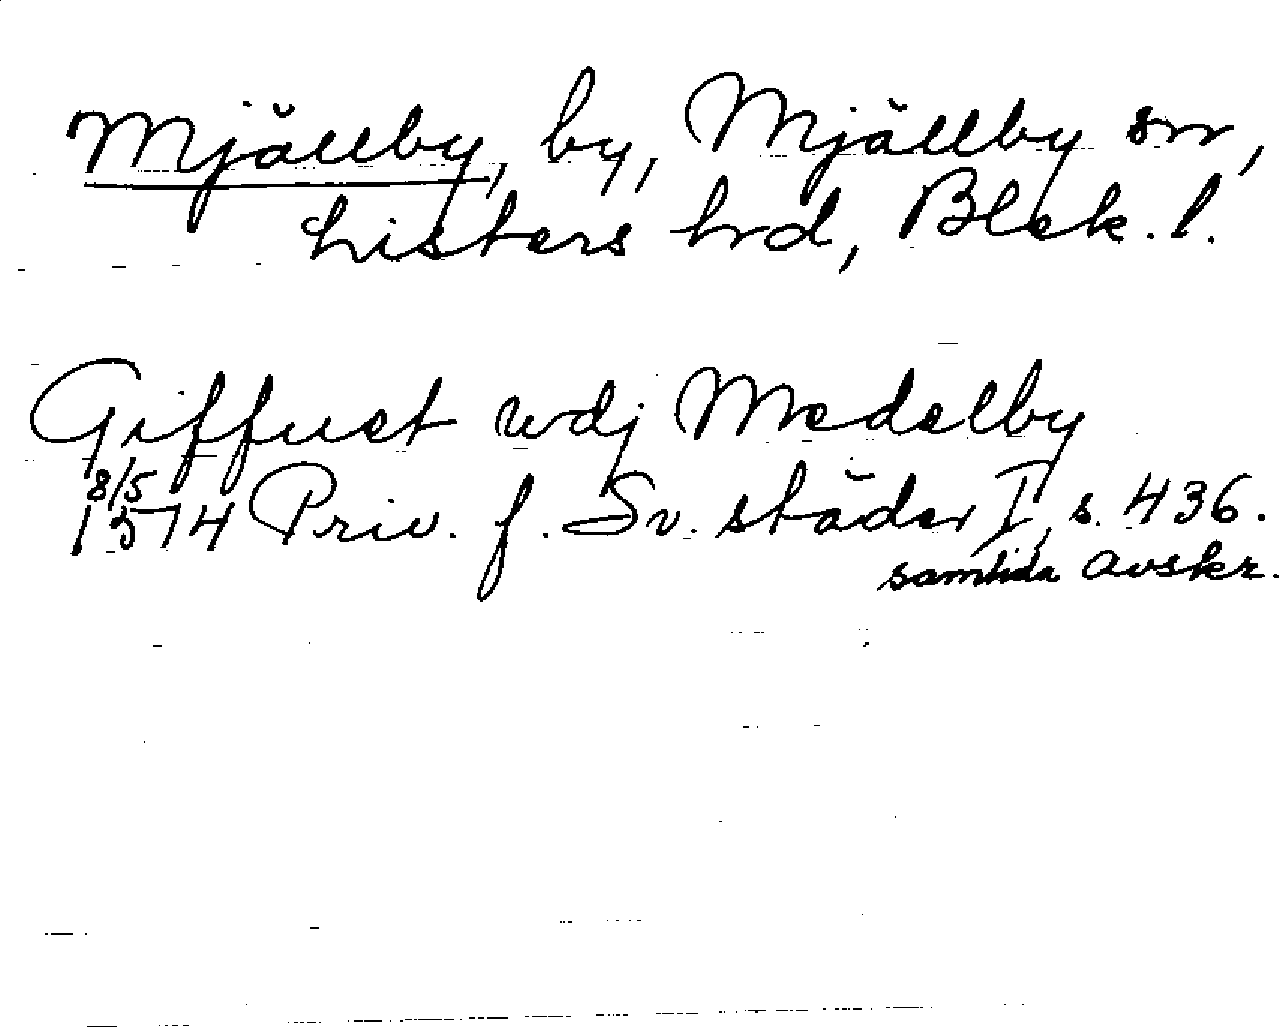 Mjällby, by, Mjällby sn,
Listers hrd, Blek. l.
Giffuet wdj Medelby
8/5
1574 Priv. f. Sv. städer I, s. 436.
samtida avskr.